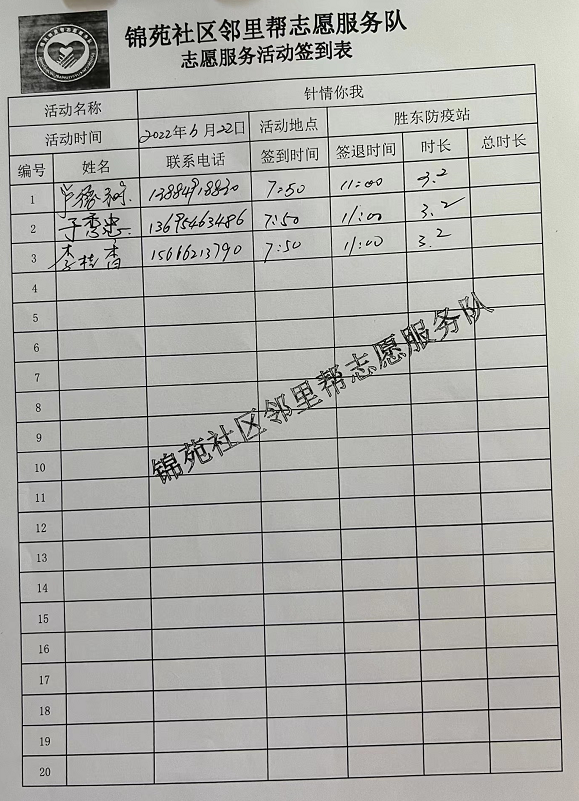 锦苑社区邻里帮志愿服务队
志愿服务活动签到表
活动名称 针情你我
活动时间 2022年6月22日 活动地点 胜东防疫站
编号 姓名 联系电话 签到时间 签退时间 时长 总时长
1 13884918830 7:50 11:00 3.2
2 13695463486 7:50 11:00 3.2
3 李桂香 15666213790 7:50 11:00 3.2
4
5
6
7
8
9
10
11
12
13
14
15
16
17
18
19
20
锦苑社区邻里帮志愿服务队